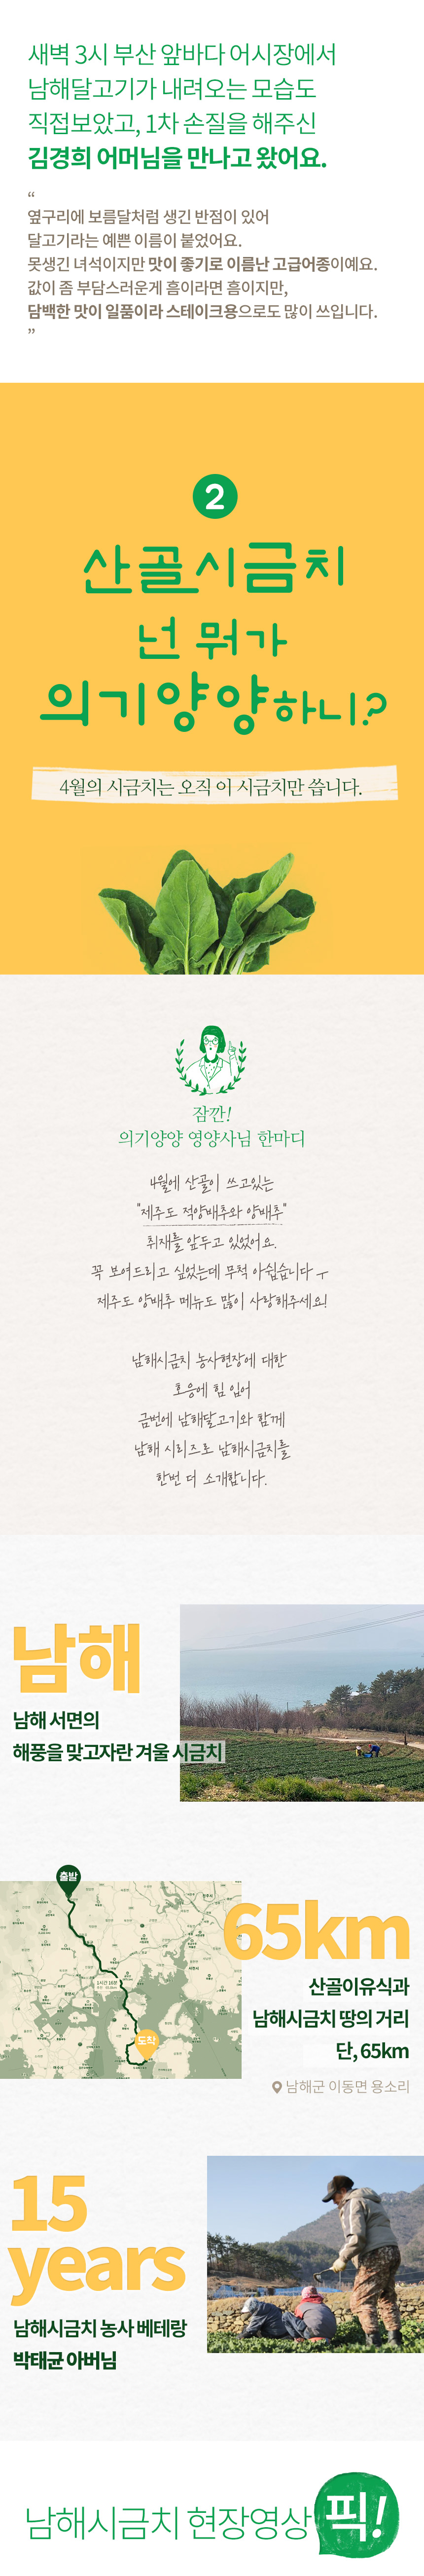 새벽 3시 부산 앞바다 어시장에서
남해달고기가 내려오는 모습도
직접보았고, 1차 손질을 해주신
김경희 어머님을 만나고 왔어요.
“
옆구리에 보름달처럼 생긴 반점이 있어
달고기라는 예쁜 이름이 붙었어요.
못생긴 녀석이지만 맛이 좋기로 이름난 고급어종이예요.
값이 좀 부담스러운게 흠이라면 흠이지만,
담백한 맛이 일품이라 스테이크용으로도 많이 쓰입니다.
”
2
산골시금치
넌 뭐가
의기양양하니?
4월의 시금치는 오직 이 시금치만 씁니다.
잠깐!
의기양양 영양사님 한마디
4월에 산골이 쓰고있는
"제주도 적양배추와 양배추"
취재를 앞두고 있었어요.
꼭 보여드리고 싶었는데 무척 아쉽습니다 ㅜ
제주도 양배추 메뉴도 많이 사랑해주세요!
남해시금치 농사현장에 대한
호응에 힘 입어
금번에 남해달고기와 함께
남해 시리즈로 남해시금치를
한번 더 소개합니다.
남해
남해 서면의
해풍을 맞고자란 겨울 시금치
출발
도착
65km
산골이유식과
남해시금치 땅의 거리
단, 65km
남해군 이동면 용소리
15
years
남해시금치 농사 베테랑
박태균 아버님
남해시금치 현장영상 픽!